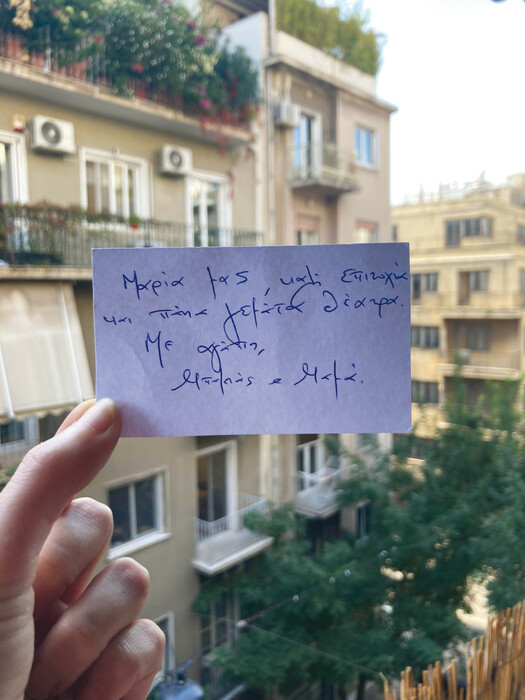 Μαρία μας, καλή επιτυχία
και πάντα γεμάτα θέατρα.
Με αγάπη,
Μπαμπάς & Μαμά.